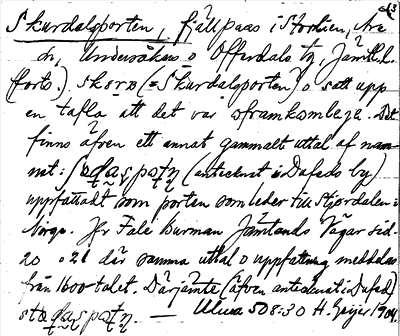 Skurdalsporten, fjällpass i Storlien, Åre
sn, Undersåkers o Offerdals tg, Jämtl. l.
(forts.) Skurd (= Skurdalsporten) o satt upp
en tafla att det var oframkomlig. Det
finns äfven ett annat gammalt uttal af nam-
net: (antecknat i Dufeds by)
uppfattadt som porten som leder till Stjordalen i
Norge. Jfr Fale Burman Jämtlands Vägar sid.
20 o 21 där samma uttal o uppfattning meddelas
från 1600-talet. Därjämte (äfven antecknat i Dufed)
— Ulma 508:30 H. Geijer 1909